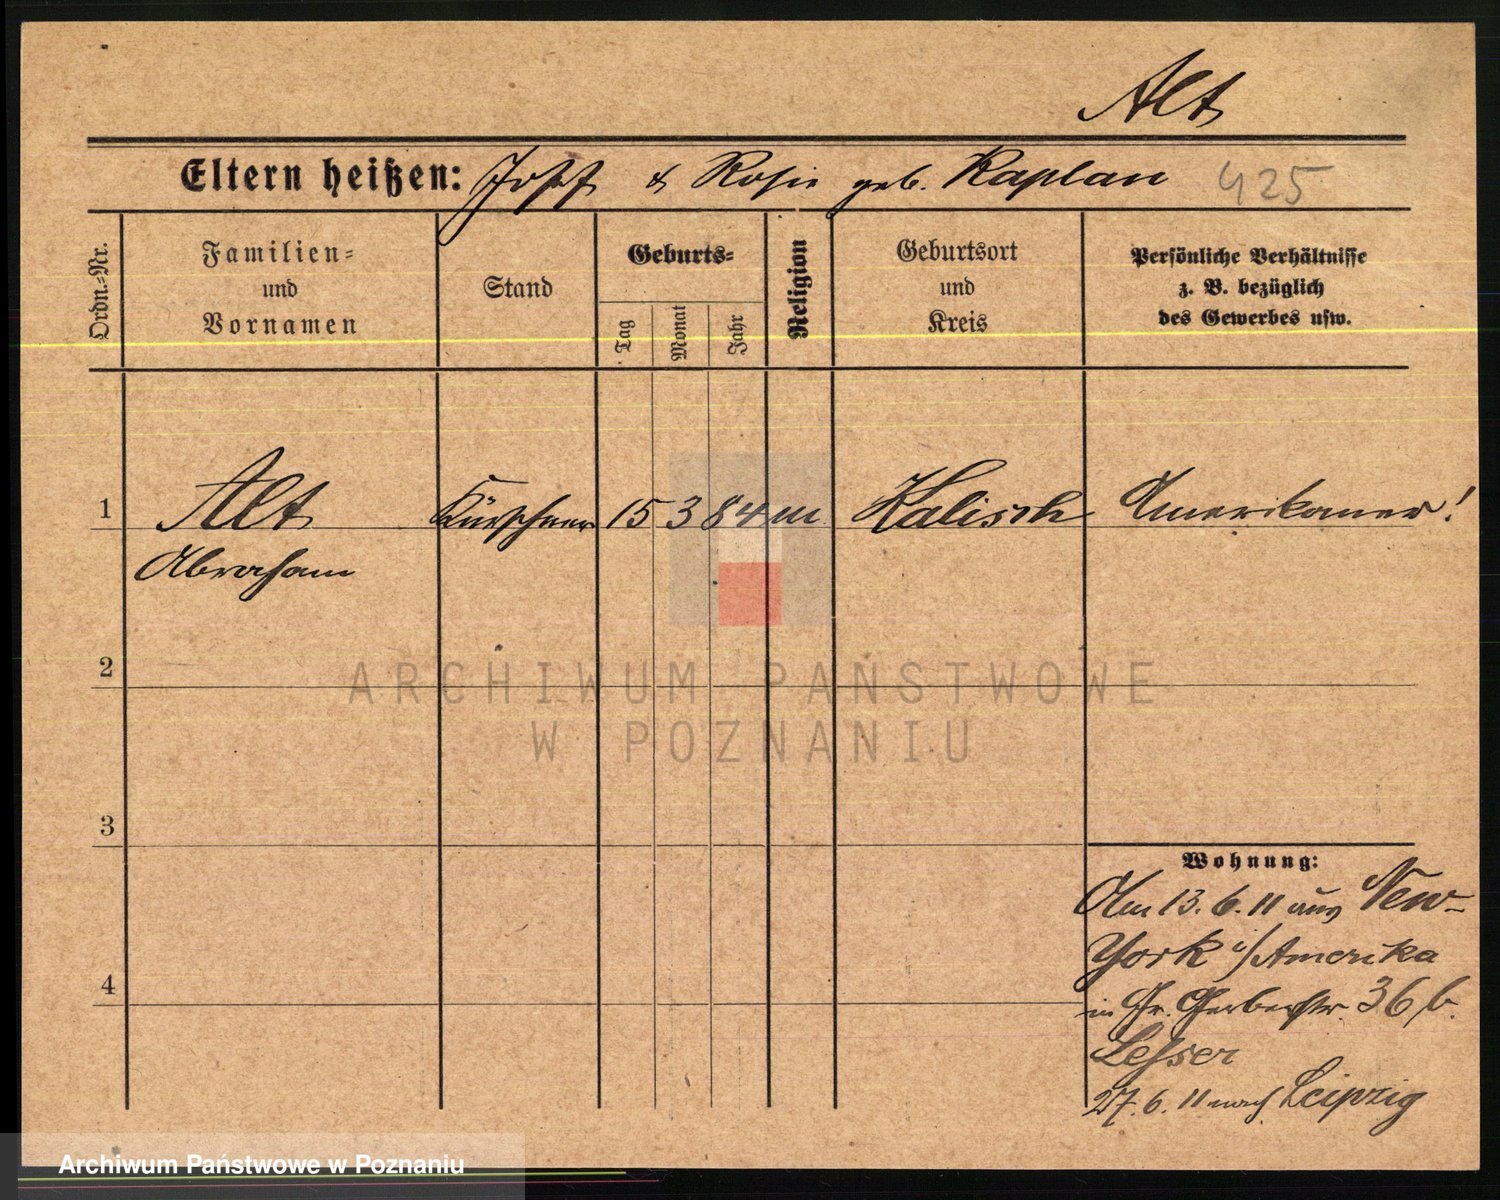 Alt
Eltern heißen: Josef & Rosie geb. Kaplan 425
Ordn.=Nr.
Familien=
und
Vornamen
Stand
Geburts=
Tag
Monat
Jahr
Religion
Geburtsort
und
Kreis
Persönliche Verhältnisse
z. B. bezüglich
des Gewerbes usw.
1 Alt Kürschner 15 3 84 m Kalisch Amerikaner!
Abraham
2
3
Wohnung:
Am 13. 6. 11 aus New-
York i/Amerika
4
in Gr. Gerberstr. 36 b.
Lesser
27. 6. 11 nach Leipzig
ARCHIWUM PAŃSTWOWE
W POZNANIU
Archiwum Państwowe w Poznaniu